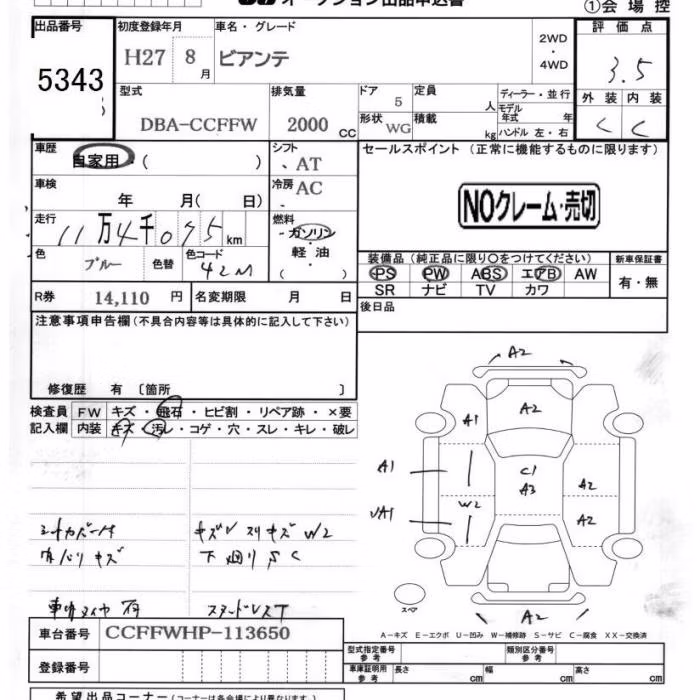 オークション出品申込書
①会場控
出品番号 初度登録年月 車名・グレード 2WD・4WD 評価点
5343 H27 8月 ビアンテ 3.5
型式 排気量 ドア 定員 ディーラー・並行 外装 内装
DBA-CCFFW 2000cc 5 人 モデル年式 年 C C
形状 WG 積載 kg ハンドル 左・右
車歴 自家用・( ) シフト 、AT セールスポイント(正常に機能するものに限ります)
車検 年 月( 日) 冷房 AC
NOクレーム・売切
走行 11万4千075km 燃料 ・ガソリン・軽油・( )
色 ブルー 色替 色コード 42M
装備品(純正品に限り○をつけてください) 新車保証書
PS PW ABS エアB AW 有・無
SR ナビ TV カワ
R券 14,110円 名変期限 月 日 後日品
注意事項申告欄(不具合内容等は具体的に記入して下さい)
修復歴 有〔箇所 〕
検査員 FW キズ・飛石・ヒビ割・リペア跡・×要
記入欄 内装 キズ・汚レ・コゲ・穴・スレ・キレ・破レ
A2
A1 A2
A1 C1 A3 A2
UA1 W2 A2
A2
スペア
シートカバー付 キズ スリキズ W2
内ハリキズ 下廻りSC
車内タイヤ有 スタッドレスT
A－キズ E－エクボ U－凹み W－補修跡 S－サビ C－腐食 XX－交換済
車台番号 CCFFWHP-113650
登録番号
型式指定番号 参考 類別区分番号 参考
車庫証明用 参考 長さ cm 幅 cm 高さ cm
希望出品コーナー(コーナーは各会場により異なります)